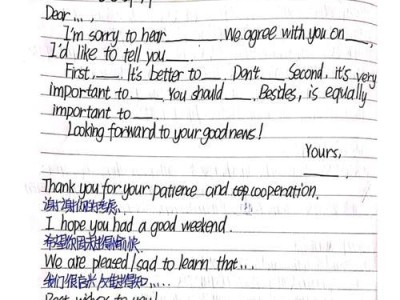 Dear...,
I'm sorry to hear____. We agree with you on___,
I'd like to tell you____.
First,____. It's better to____. Don't____ Second, it's very
important to____. You should____. Besides, is equally
important to____.
Looking forward to your good news!
Yours,
____.
Thank you for your patience and cooperation.
I hope you had a good weekend.
希望你周末过得愉快.
We are pleased/sad to learn that...
我们很高兴/
Best wishes to you!